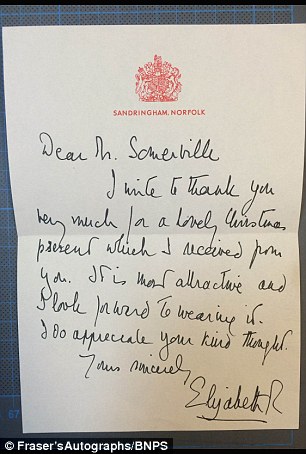 SANDRINGHAM, NORFOLK
Dear Mr. Somerville
I write to thank you
very much for a lovely Christmas
present which I received from
you. It is most attractive and
I look forward to wearing it.
I do appreciate your kind thought.
Yours sincerely
Elizabeth R
© Fraser'sAutographs/BNPS